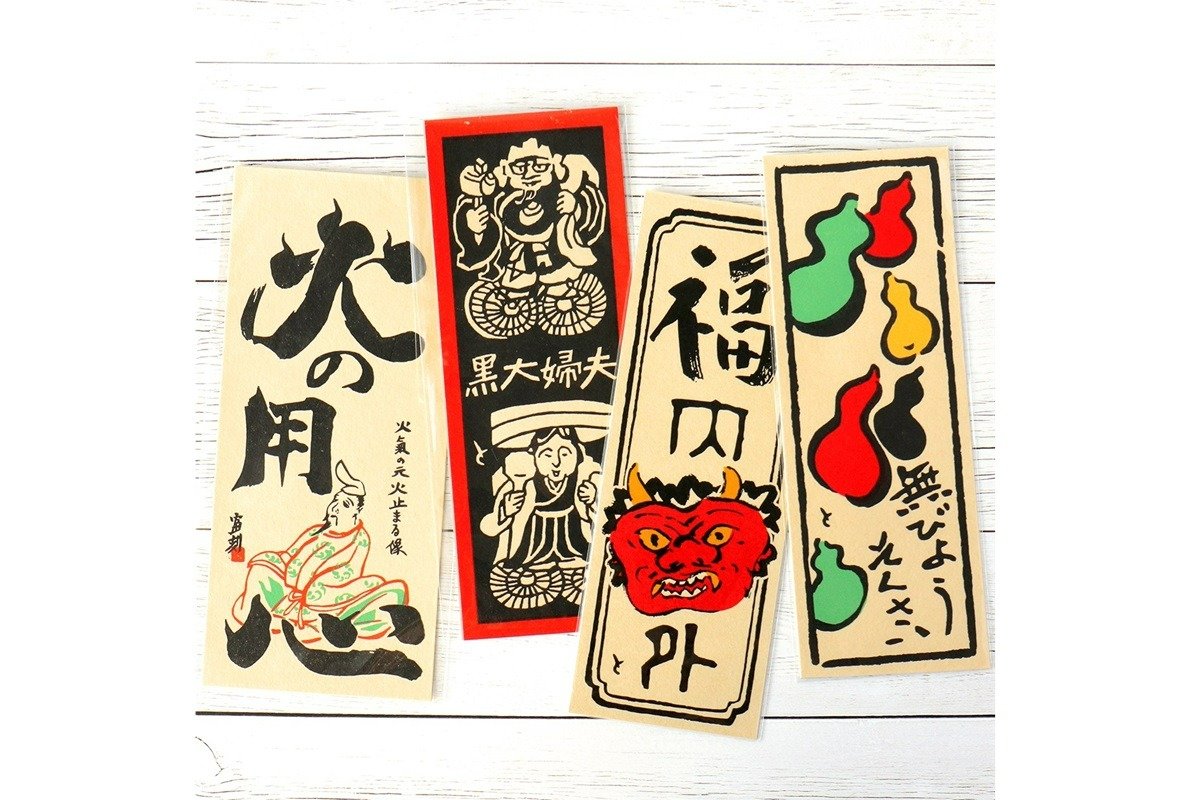 火の用心
火氣の元 火止まる像
夫婦大黒
と
福
内
外
と
無びよう
そくさい
と